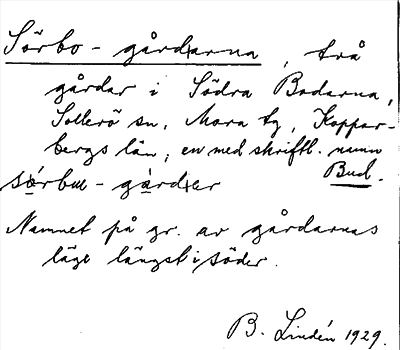 Sörbo-gårdarna, två
gårdar i Södra Bodarna,
Sollerö sn, Mora tg, Koppar-
bergs län; en med skriftl. namn
Bud.
Namnet på gr. av gårdarnas
läge längst i söder.
B. Lindén 1929.